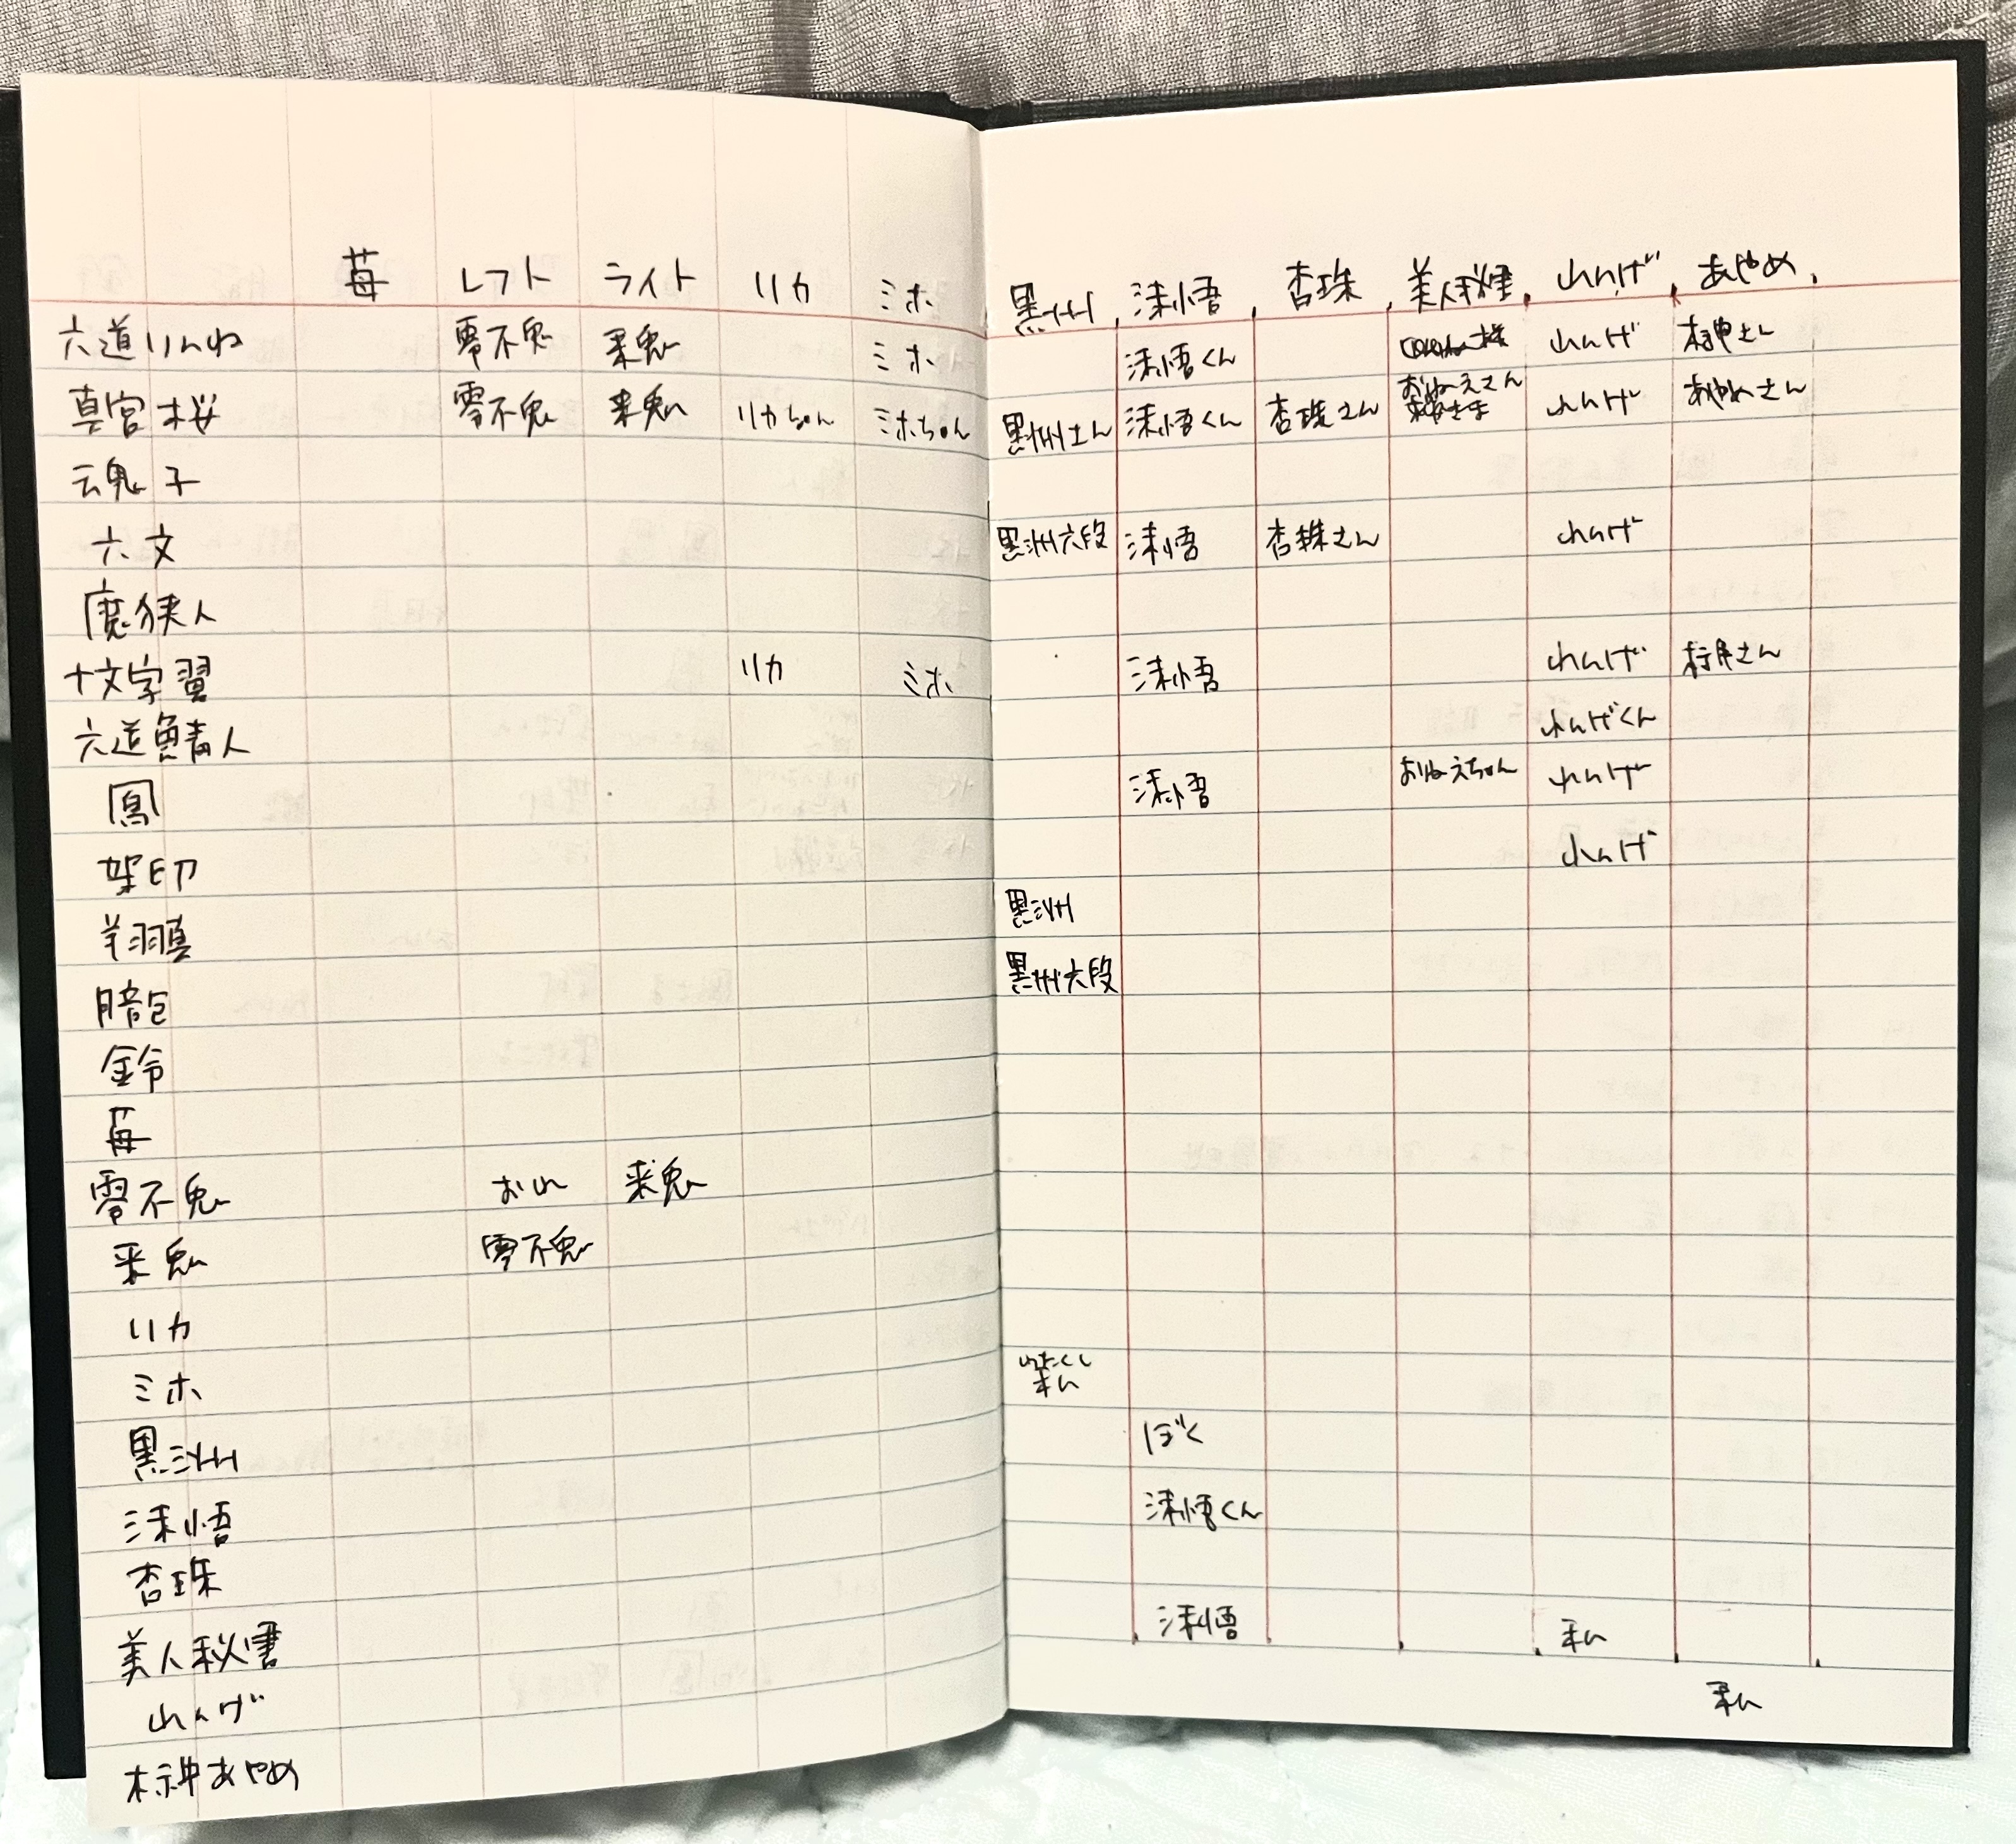 苺 レフト ライト リカ ミホ 黒洲 沫悟 杏珠 美人秘書 れんげ あやめ
六道りんね 零不兎 来兎 ミホ 沫悟くん れんげ
真宮桜 零不兎 来兎 リカちゃん ミホちゃん 黒洲さん 沫悟くん 杏珠さん おねえさん れんげ あやめさん
魂子
六文 黒洲六段 沫悟 杏珠さん れんげ
魔狭人
十文字翼 リカ ミホ 沫悟 れんげ
六道鯖人 れんげくん
鳳 沫悟 おねえちゃん れんげ
架印 れんげ
翔真 黒洲
黒洲六段
鈴
苺
零不兎 おれ 来兎
来兎 零不兎
リカ
ミホ
黒洲 わたくし 私
沫悟 ぼく
杏珠 沫悟くん
美人秘書
れんげ 沫悟 私
あやめ 私